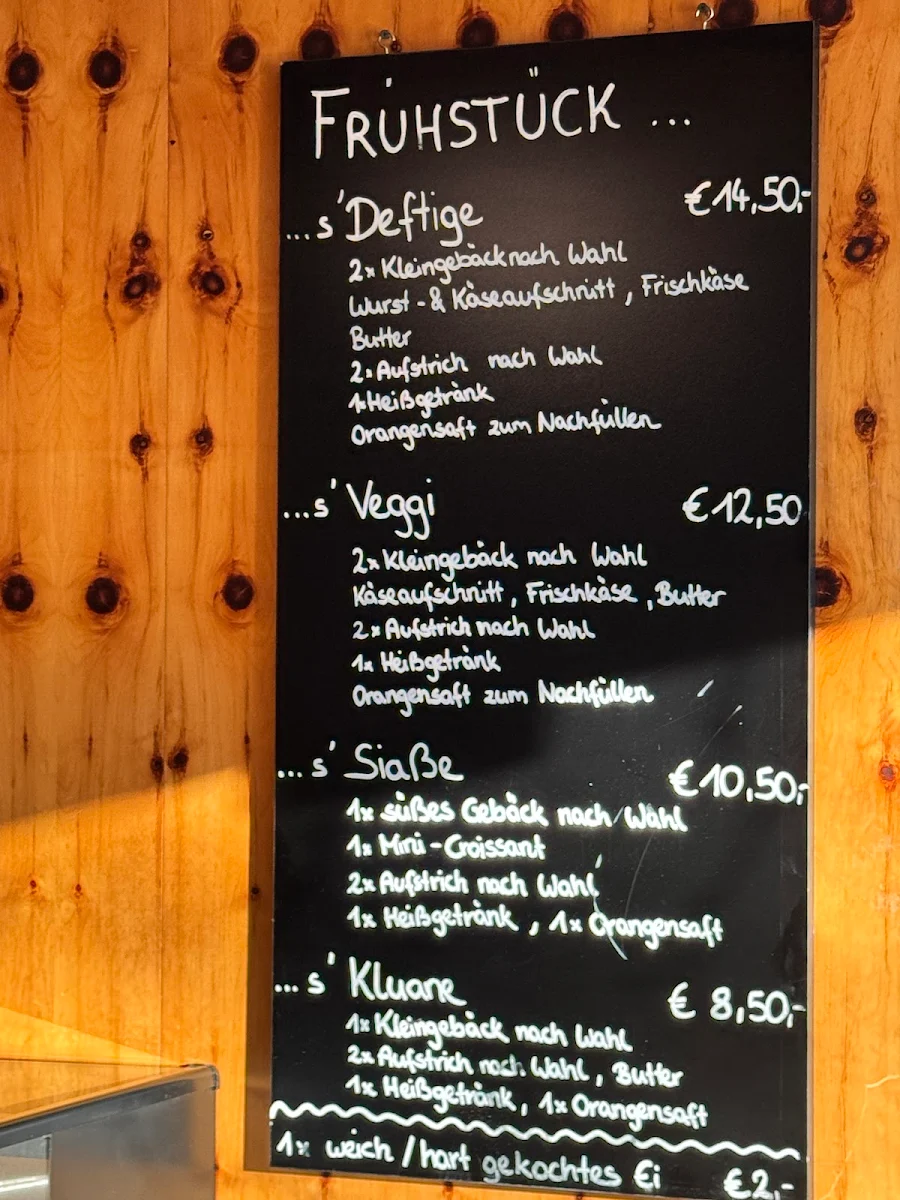 FRÜHSTÜCK ...
...s' Deftige €14,50,-
2x Kleingebäck nach Wahl
Wurst-& Käseaufschnitt, Frischkäse
Butter
2x Aufstrich nach Wahl
1x Heißgetränk
Orangensaft zum Nachfüllen
...s' Veggi €12,50
2x Kleingebäck nach Wahl
Käseaufschnitt, Frischkäse, Butter
2x Aufstrich nach Wahl
1x Heißgetränk
Orangensaft zum Nachfüllen
...s' Siaße €10,50,-
1x süßes Gebäck nach Wahl
1x Mini-Croissant
2x Aufstrich nach Wahl
1x Heißgetränk, 1x Orangensaft
...s' Kluane € 8,50,-
1x Kleingebäck nach Wahl
2x Aufstrich nach Wahl, Butter
1x Heißgetränk, 1x Orangensaft
1x weich/hart gekochtes Ei €2,-